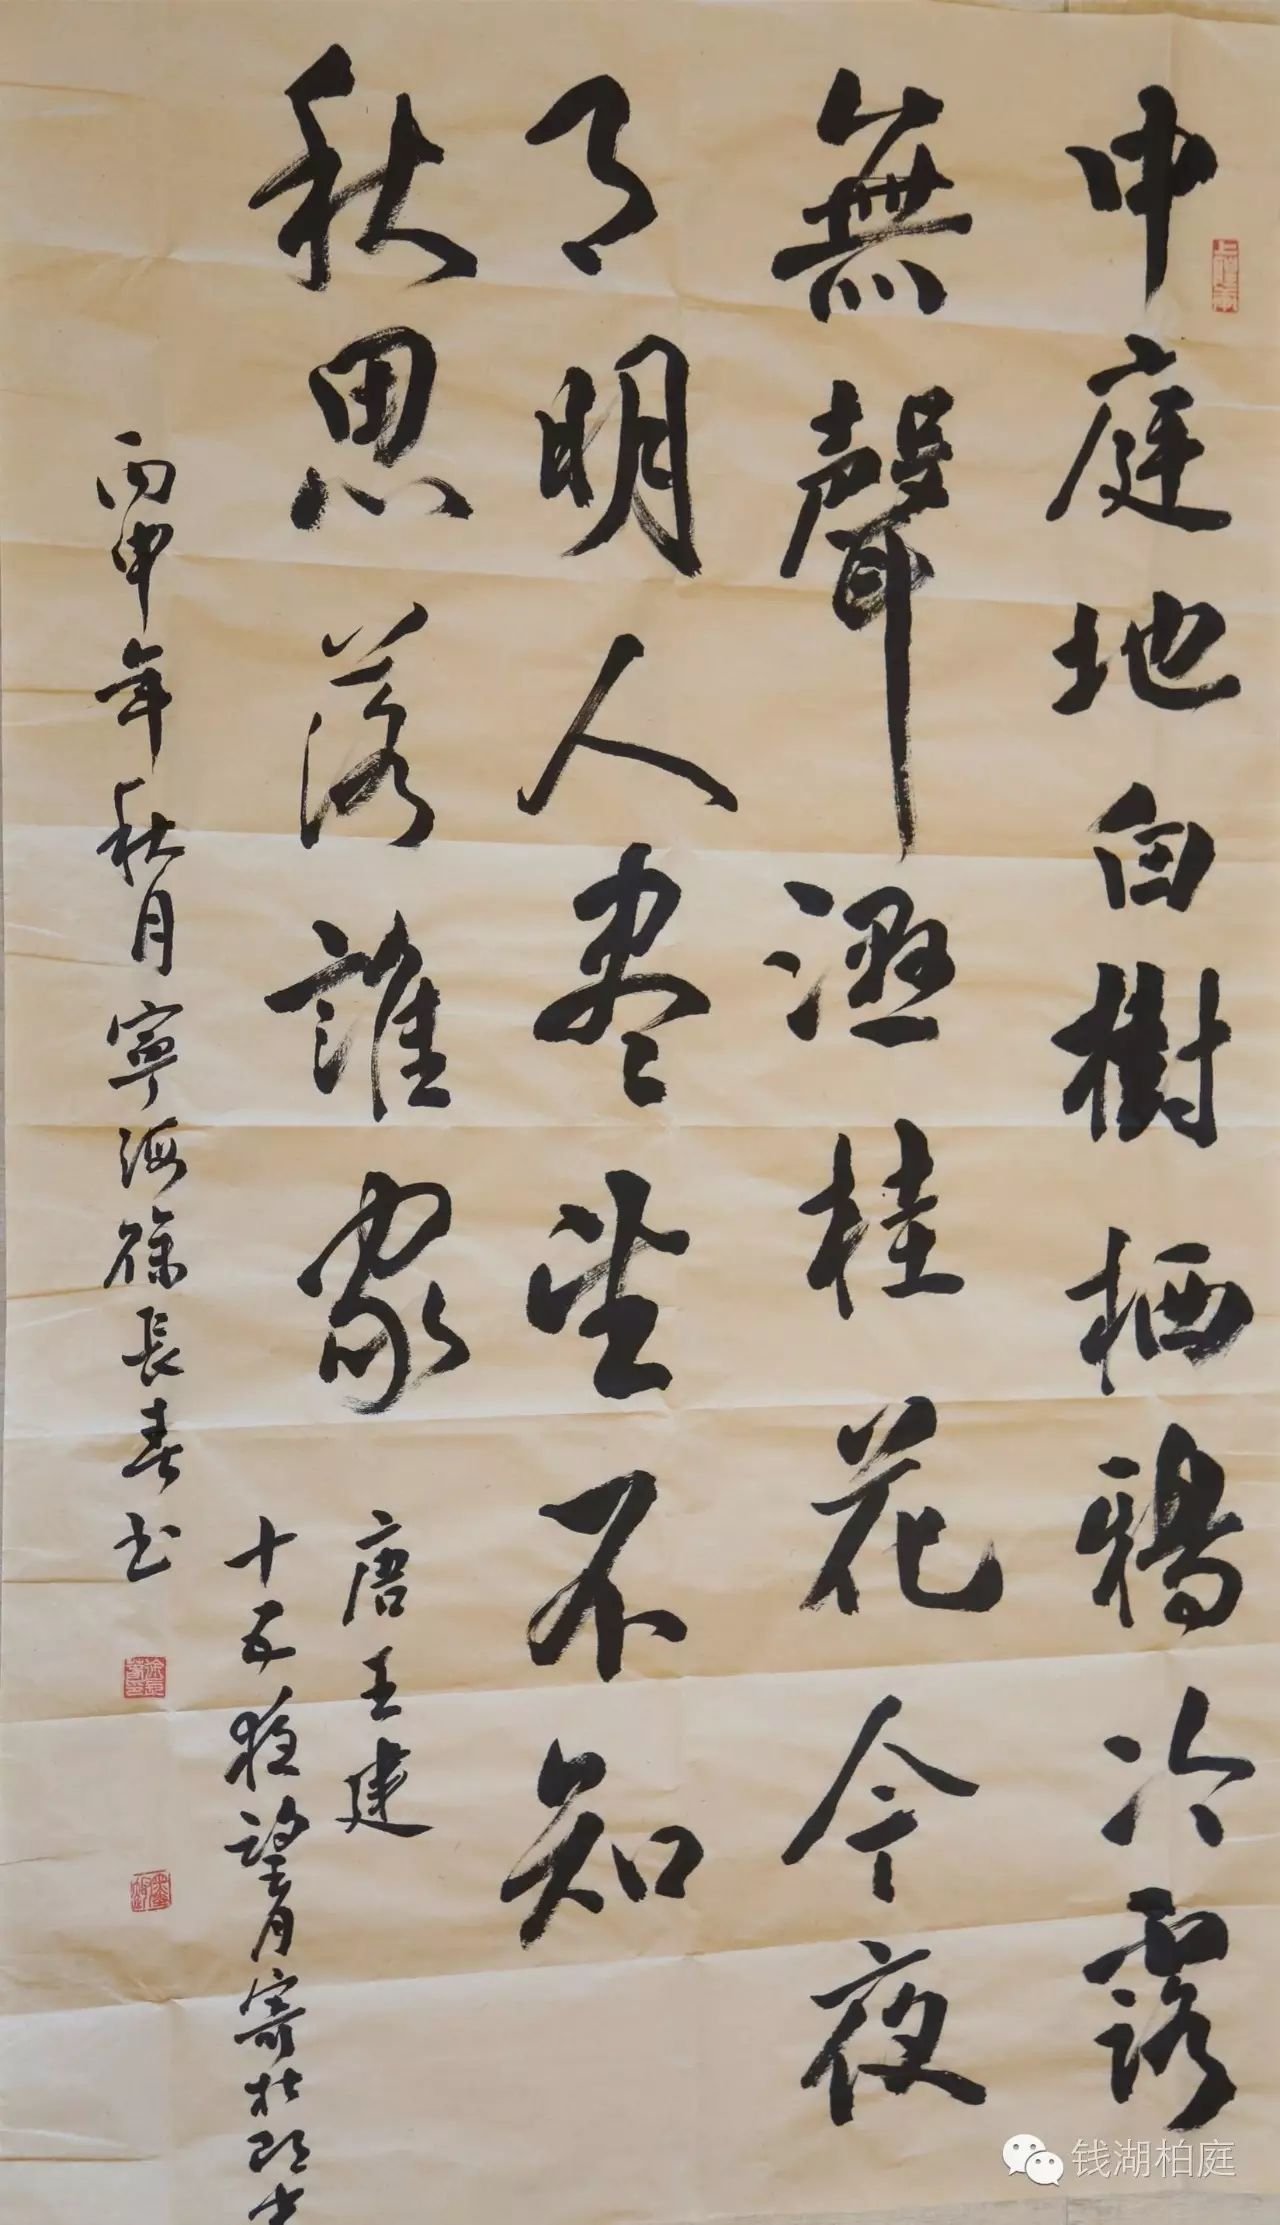 中庭地白樹栖鴉冷露
無聲濕桂花今夜
月明人尽望不知
秋思落誰家
唐王建
十五夜望月寄杜郎中
丙申年秋月寧海徐長春书
钱湖柏庭